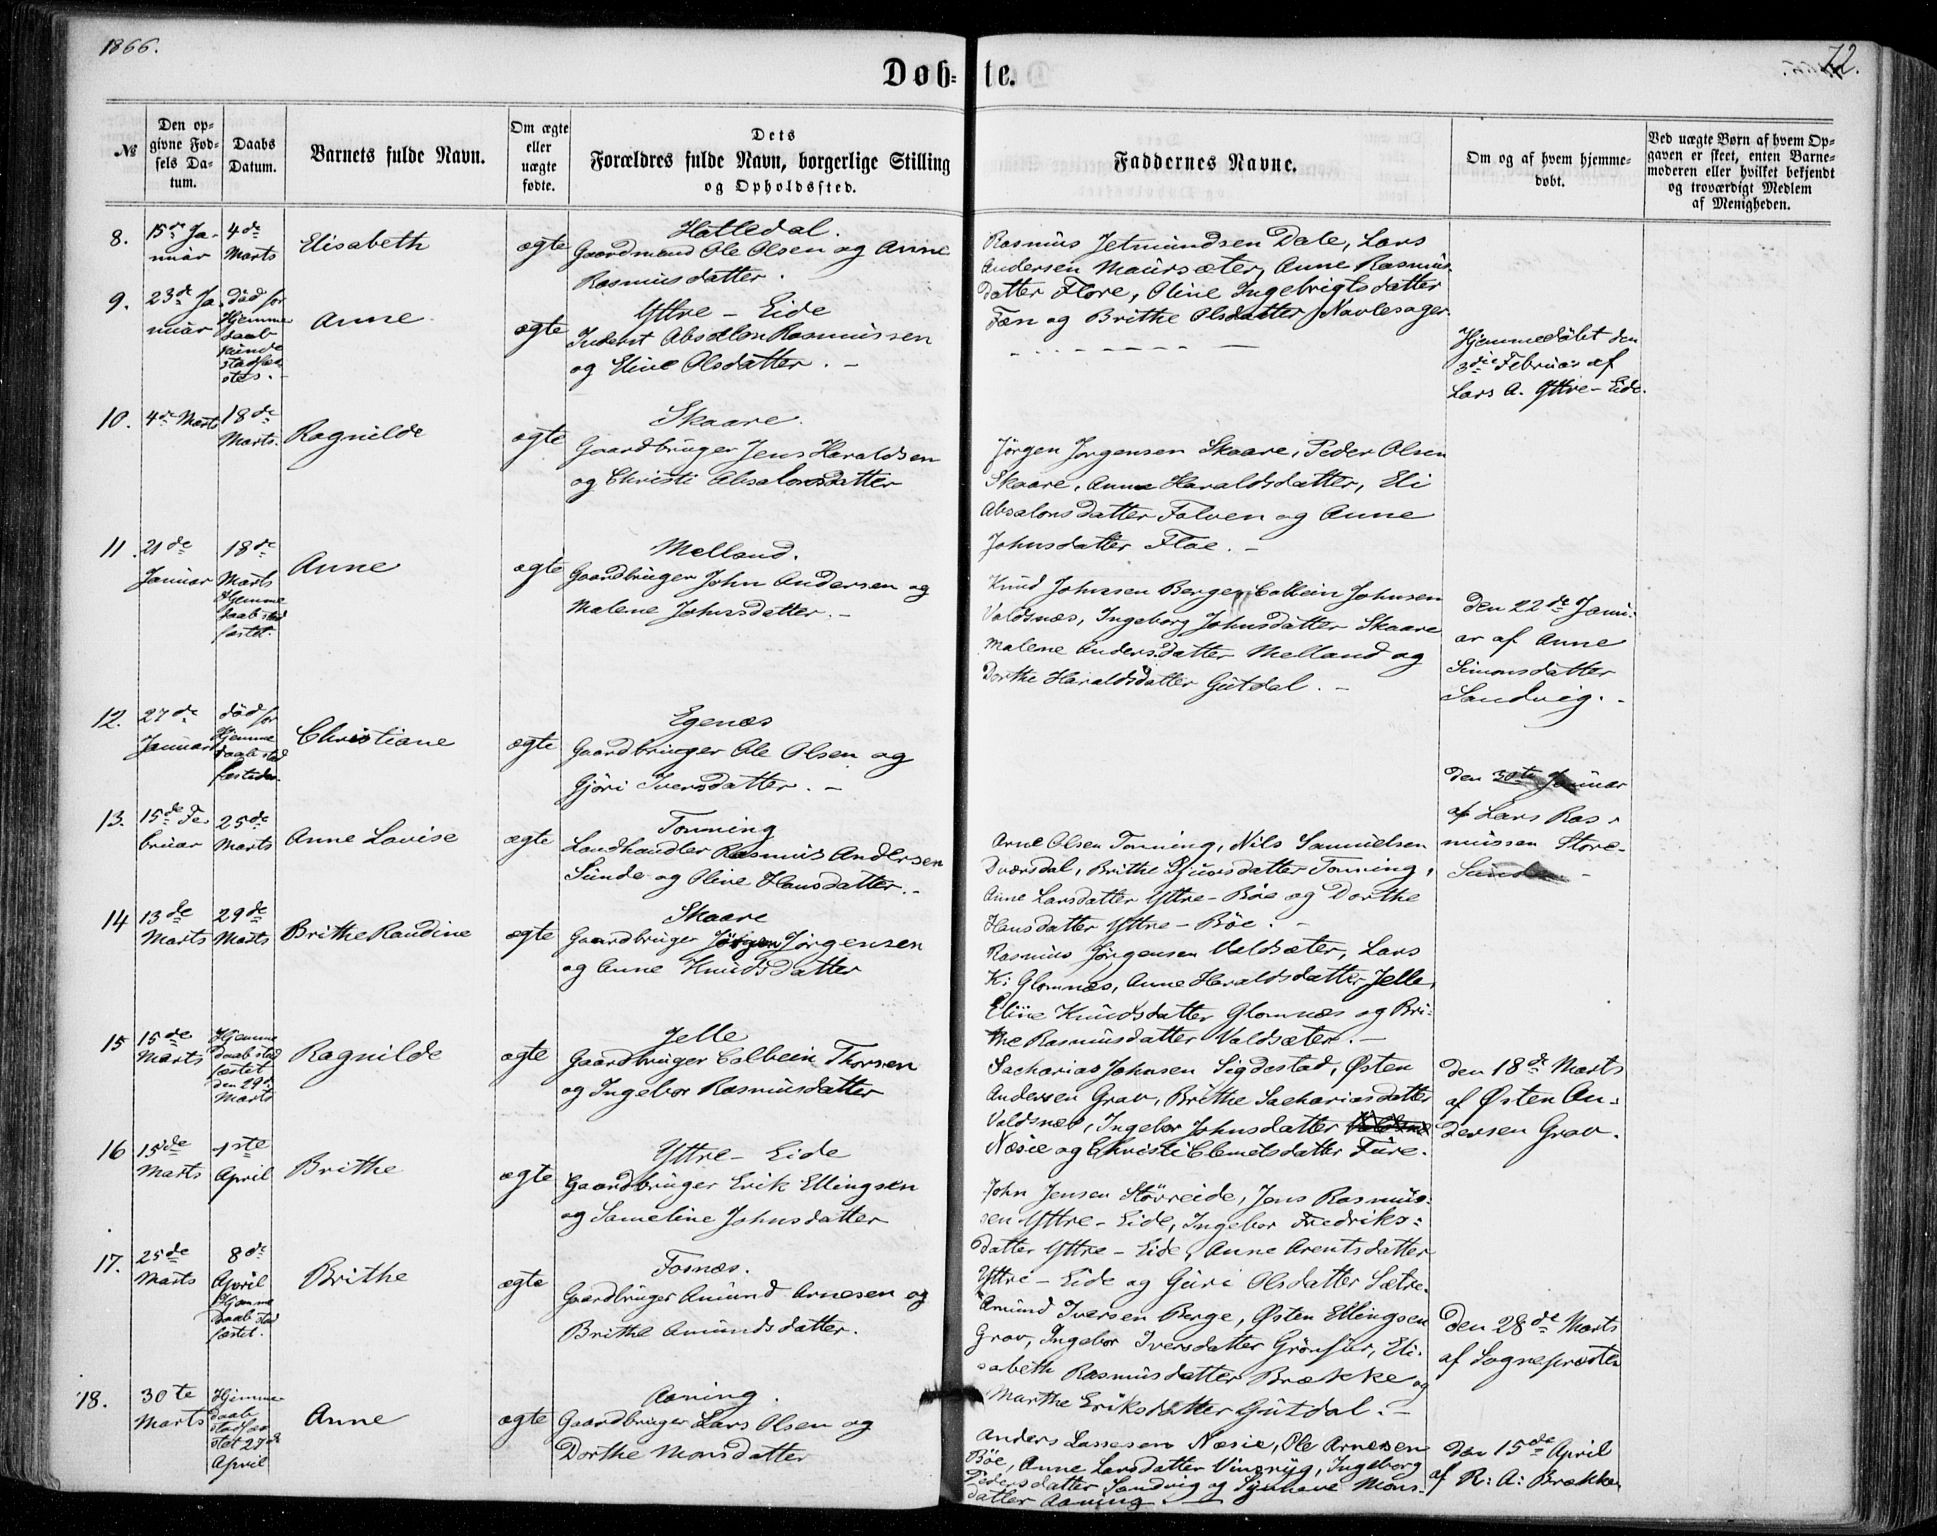 1866.
72.
Døb-
te.
№
Den op-
givne Fød-
sels Da-
tum.
Daabs
Datum.
Barnets fulde Navn.
Om ægte
eller
uægte
fødte.
Dets
Forældres fulde Navn, borgerlige Stilling
og Opholdssted.
Faddernes Navne.
Om og af hvem hjemme-
døbt.
Ved uægte Børn af hvem Op-
gaven er skeet, enten Barne-
moderen eller hvilket bekjendt
og troværdigt Medlem
af Menigheden.
8.
15de Ja-
nuar
4de
Marts
Elisabeth
ægte
Hattedal.
Gaardmand Ole Olsen og Anne
Rasmusdatter.
Rasmus Jetmundsen Dale, Lars
Andersen Maursæter, Anne Rasmus-
datter Flore, Oline Ingebrigtsdatter
Fæn og Brithe Olsdatter Navlesager
9.
23de Ja
nuar
død før
Hjemme
daab
kunde
stadfæ
stes.
Anne
ægte
Yttre - Eide
Inderst Absalon Rasmussen
og Eline Olsdatter. -
Hjemmedøbt den
3die Februar af
Lars A. Yttre - Eide.
10.
4de Marts
18de
Marts.
Ragnilde
ægte
Skaare.
Gaardbruger Jens Haraldsen
og Christi Absalonsdatter
Jørgen Jørgensen Skaare, Peder Olsen
Skaare, Anne Haraldsdatter, Eli
Absalonsdatter Folven og Anne
Johnsdatter Floe. -
11.
21de
Januar
18de
Marts
Hjemme
daab stad
fæstet.
Anne
ægte
Melland.
Gaardbruger John Andersen og
Malene Johnsdatter. -
Knud Johnsen Berge, Colbein Johnsen
Voldsnæs, Ingeborg Johnsdatter Skaare
Malene Andersdatter Melland og
Dorthe Haraldsdatter Gutdal. -
Den 22de Janu-
ar af Anne
Simonsdatter
Sandvig. -
12.
27de
Januar
død før
Hjemme
daab stad
fæstedes.
Christiane
ægte
Egenæs
Gaardbruger Ole Olsen og
Gjøri Iversdatter. -
Den 30te Januar
af Lars Ras-
mussen Store-
Sunde -
13.
15de Fe-
bruar
25de
Marts
Anne Lovise
ægte
Tonning
Landhandler Rasmus Andersen
Sunde og Oline Hansdatter. -
Arne Olsen Tonning, Nils Samuelsen
Dværsdal, Brithe Sjursdatter Tonning,
Anne Larsdatter Yttre - Bøe og Dorthe
Hansdatter Yttre - Bøe. -
14
13de
Marts
29de
Marts
Brithe Raudine
ægte
Skaare
Gaardbruger Jørgen Jørgensen
og Anne Knudsdatter
Rasmus Jørgensen Valdsæter, Lars
K: Glomnæs, Anne Haraldsdatter Jelle,
Eline Knudsdatter Glomnæs og Bri-
the Rasmusdatter Valdsæter. -
15
15de
Marts
Hjemme
daab stad
fæstet
den 29de
Marts
Ragnilde
ægte
Jelle
Gaardbruger Colbein Thorsen
og Ingebor Rasmusdatter
Sacharias Johnsen Sigdestad, Østen
Andersen Grav, Brithe Sachariasdatter
Voldsnæs, Ingebor Johnsdatter
Næsie og Christi Clemetsdatter Fure.
Den 18de Marts
af Østen An-
dersen Grav.
16
15de
Marts
1ste
April
Brithe
ægte
Yttre - Eide
Gaardbruger Erik Ellingsen
og Sameline Johnsdatter
John Jensen Støvreide, Jens Rasmus-
sen Yttre - Eide, Ingebor Fredriks-
datter Yttre - Eide, Anne Arentsdatter
Yttre - Eide og Guri Olsdatter Sætre.
17.
25de
Marts
8de
April
Hjemme
daab stad
fæstet.
Brithe
ægte
Fosnæs.
Gaardbruger Amund Arnesen og
Brithe Amundsdatter.
Amund Iversen Berge, Østen Ellingsen
Grav, Ingebor Iversdatter Grønfur, Eli-
sabeth Rasmusdatter Brække og
Marthe Eriksdatter Gutdal. -
Den 28de Marts
af Sognepræsten
18.
30te
Marts
Hjemme
daab
stadfæ
stet 27de
April
Anne
ægte
Aaning.
Gaardbruger Lars Olsen og
Dorthe Monsdatter
Anders Lassesen Næsie, Ole Arnesen
Bøe, Anne Larsdatter Vinsryg, Ingeborg
Pedersdatter Sandvig og Synneve Mons-
datter Aaning. -
Den 15de April
af R: A: Brække